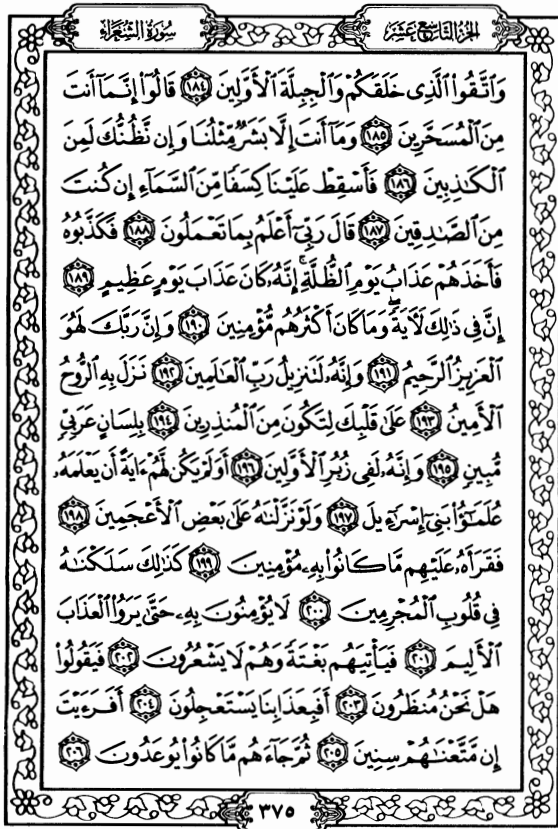 سُورَةُ الشُّعَرَاءِ
الجُزْءُ التَّاسِعَ عَشَرَ
وَٱتَّقُوا۟ ٱلَّذِى خَلَقَكُمْ وَٱلْجِبِلَّةَ ٱلْأَوَّلِينَ ١٨٤ قَالُوٓا۟ إِنَّمَآ أَنتَ
مِنَ ٱلْمُسَحَّرِينَ ١٨٥ وَمَآ أَنتَ إِلَّا بَشَرٌ مِّثْلُنَا وَإِن نَّظُنُّكَ لَمِنَ
ٱلْكَـٰذِبِينَ ١٨٦ فَأَسْقِطْ عَلَيْنَا كِسَفًا مِّنَ ٱلسَّمَآءِ إِن كُنتَ
مِنَ ٱلصَّـٰدِقِينَ ١٨٧ قَالَ رَبِّىٓ أَعْلَمُ بِمَا تَعْمَلُونَ ١٨٨ فَكَذَّبُوهُ
فَأَخَذَهُمْ عَذَابُ يَوْمِ ٱلظُّلَّةِ ۚ إِنَّهُۥ كَانَ عَذَابَ يَوْمٍ عَظِيمٍ ١٨٩
إِنَّ فِى ذَٰلِكَ لَـَٔايَةً ۖ وَمَا كَانَ أَكْثَرُهُم مُّؤْمِنِينَ ١٩٠ وَإِنَّ رَبَّكَ لَهُوَ
ٱلْعَزِيزُ ٱلرَّحِيمُ ١٩١ وَإِنَّهُۥ لَتَنزِيلُ رَبِّ ٱلْعَـٰلَمِينَ ١٩٢ نَزَلَ بِهِ ٱلرُّوحُ
ٱلْأَمِينُ ١٩٣ عَلَىٰ قَلْبِكَ لِتَكُونَ مِنَ ٱلْمُنذِرِينَ ١٩٤ بِلِسَانٍ عَرَبِىٍّ
مُّبِينٍ ١٩٥ وَإِنَّهُۥ لَفِى زُبُرِ ٱلْأَوَّلِينَ ١٩٦ أَوَلَمْ يَكُن لَّهُمْ ءَايَةً أَن يَعْلَمَهُۥ
عُلَمَـٰٓؤُا۟ بَنِىٓ إِسْرَٰٓءِيلَ ١٩٧ وَلَوْ نَزَّلْنَـٰهُ عَلَىٰ بَعْضِ ٱلْأَعْجَمِينَ ١٩٨
فَقَرَأَهُۥ عَلَيْهِم مَّا كَانُوا۟ بِهِۦ مُؤْمِنِينَ ١٩٩ كَذَٰلِكَ سَلَكْنَـٰهُ
فِى قُلُوبِ ٱلْمُجْرِمِينَ ٢٠٠ لَا يُؤْمِنُونَ بِهِۦ حَتَّىٰ يَرَوُا۟ ٱلْعَذَابَ
ٱلْأَلِيمَ ٢٠١ فَيَأْتِيَهُم بَغْتَةً وَهُمْ لَا يَشْعُرُونَ ٢٠٢ فَيَقُولُوا۟
هَلْ نَحْنُ مُنظَرُونَ ٢٠٣ أَفَبِعَذَابِنَا يَسْتَعْجِلُونَ ٢٠٤ أَفَرَءَيْتَ
إِن مَّتَّعْنَـٰهُمْ سِنِينَ ٢٠٥ ثُمَّ جَآءَهُم مَّا كَانُوا۟ يُوعَدُونَ ٢٠٦
٣٧٥